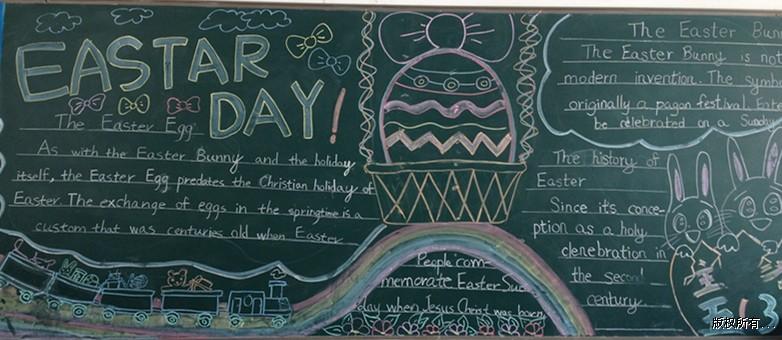 EASTAR
DAY!
The Easter Egg
As with the Easter Bunny and the holiday
itself, the Easter Egg predates the Christian holiday of
Easter. The exchange of eggs in the springtime is a
custom that was centuries old when Easter
People com-
memorate Easter Sun
day when Jesus Christ was born
The Easter Bun
The Easter Bunny is not
modern invention. The symb
originally a pagan festival. East
be celebrated on a Sunday
The history of
Easter
Since its conce-
ption as a holy
clenebration in
the second
century
版权所有